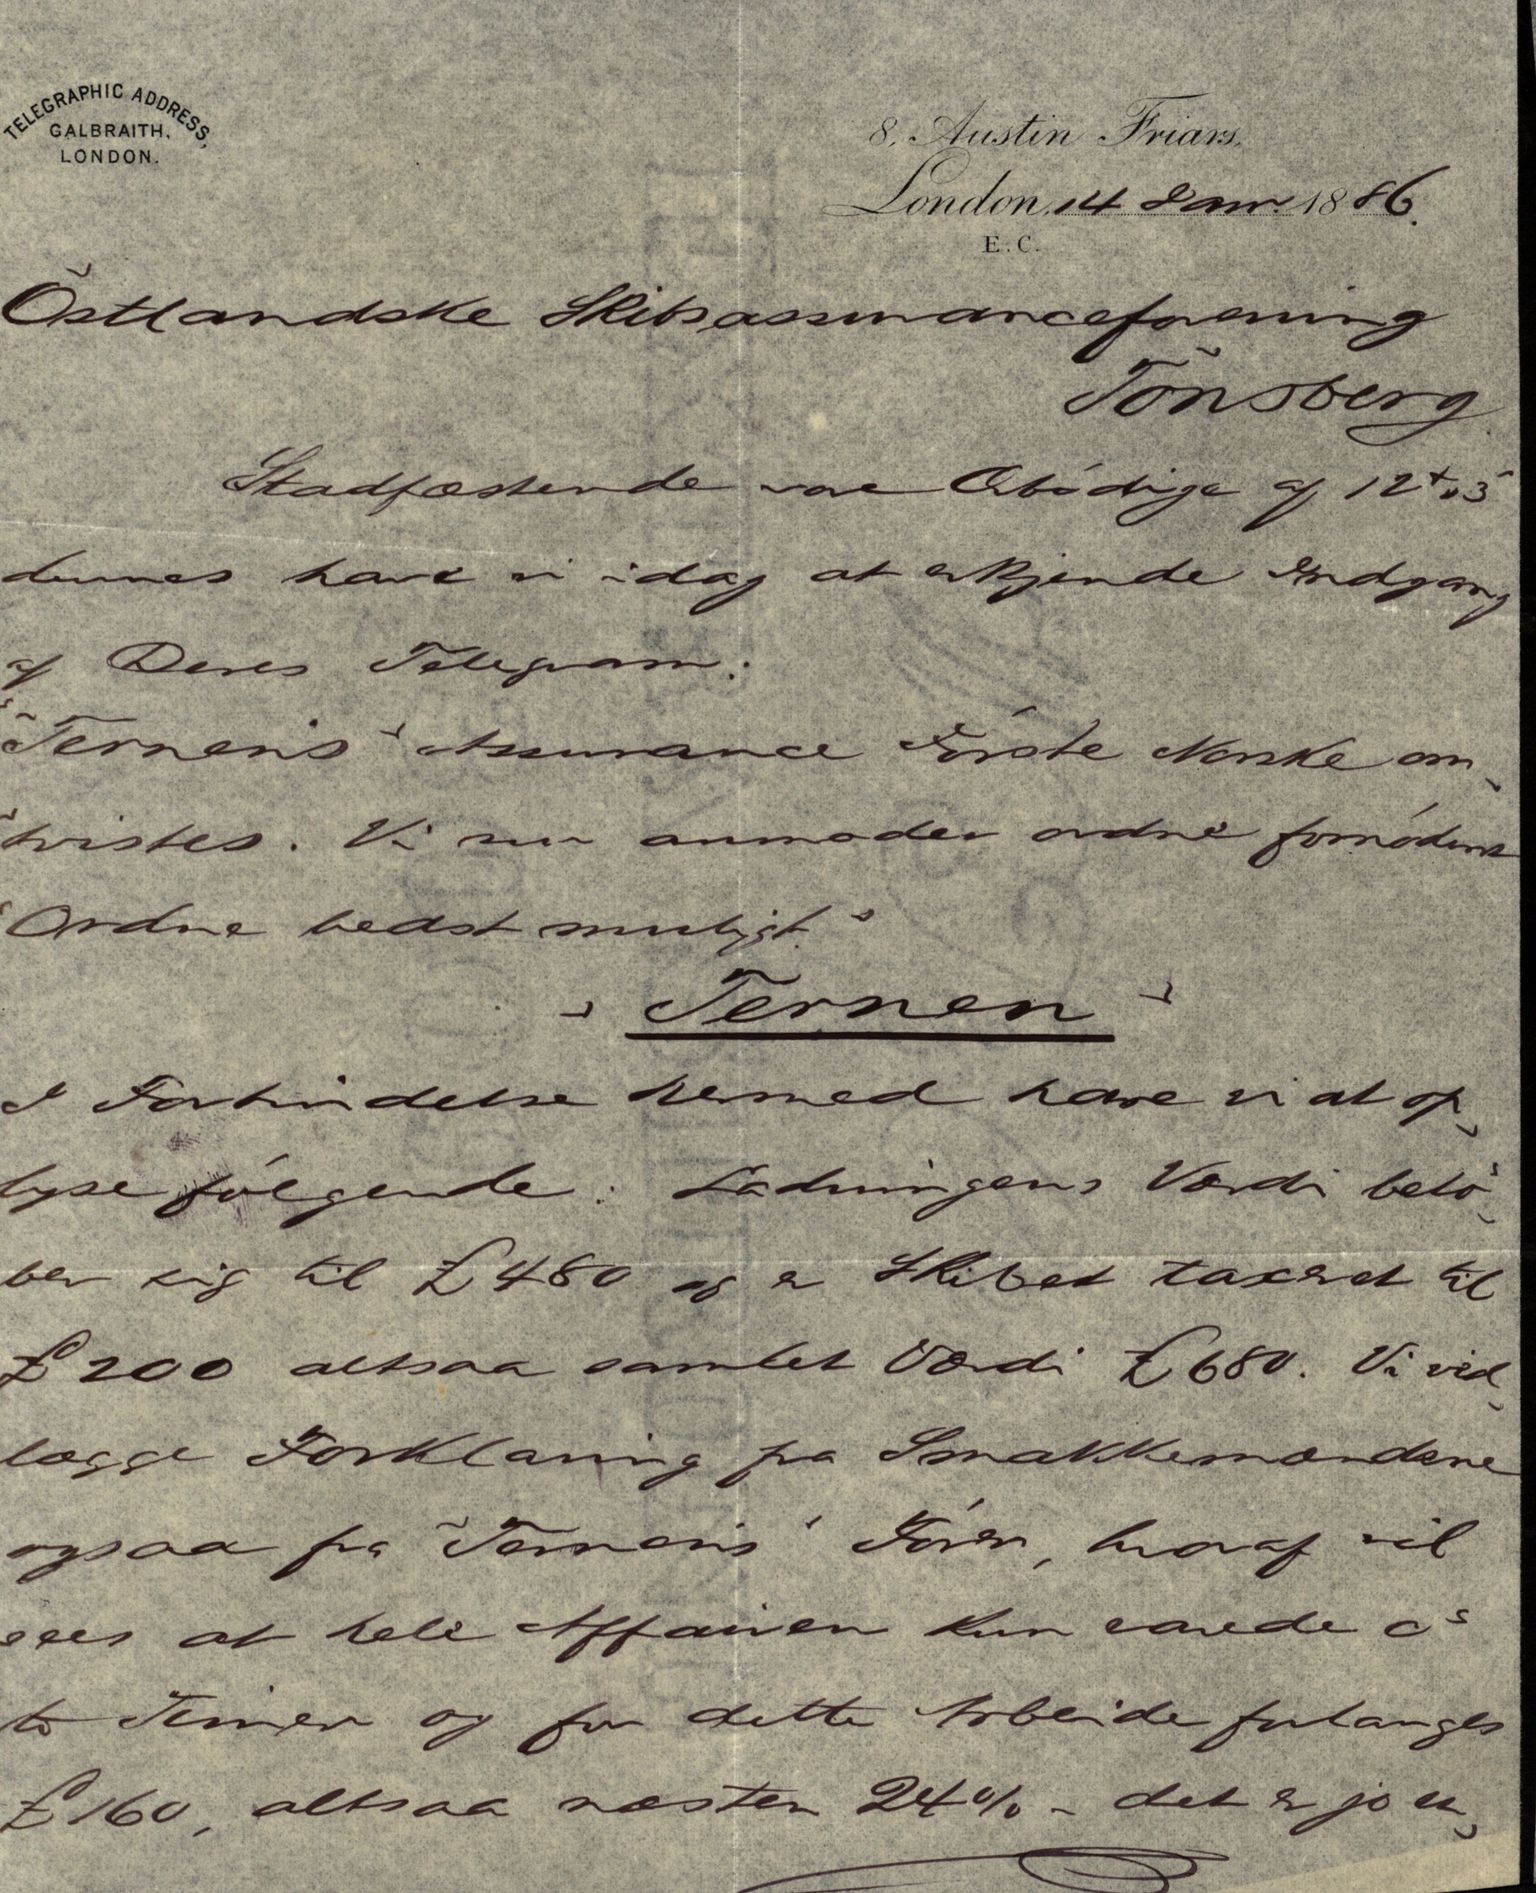 TELEGRAPHIC ADDRESS,
GALBRAITH,
LONDON.
8, Austin Friars,
London, 14 Janr. 1886.
E.C.
Östlandske Skibsassuranceforening
Tönsberg
Stadfæstende vore Ærbödige af 12t &
dennes have vi idag at erkjende Indgang
af Deres Telegram:
"Ternens" Assurance Förste Norske om-
"tvistes. Vi nu anmoder ordne fornödent
"Ordne bedst muligt"
"Ternen"
I Forbindelse hermed have vi at op-
lyse fölgende: Ladningens Værdi belö-
ber sig til £480 og er Skibet taxeret til
£200 altsaa samlet Værdi £680. Vi ved-
lægge Forklaring fra Smakkemændene
ogsaa fra "Ternens" Förer, hvoraf vil
sees at hele Affairen kun varede ca
to Timer og for dette Arbeide forlanges
£160, altsaa næsten 24% - det er jo u-